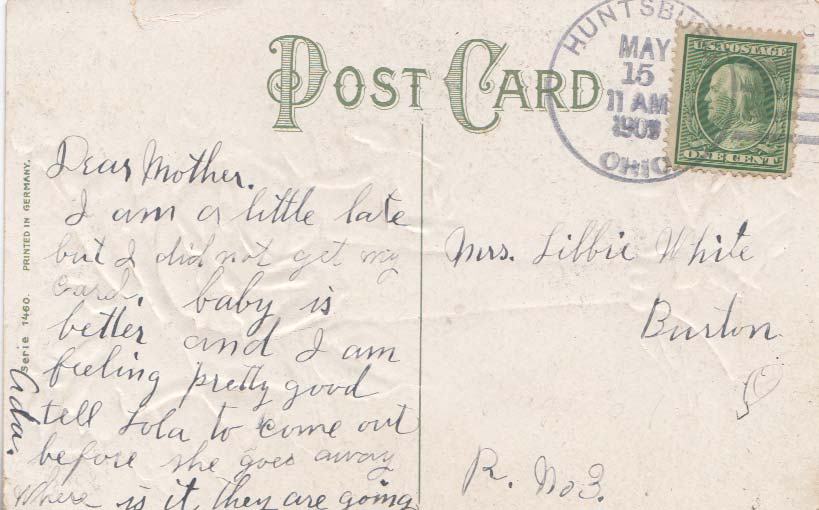 POST CARD
HUNTSBU
MAY
15
11 AM
1909
OHIO
U.S. POSTAGE
ONE CENT
Dear Mother.
I am a little late
but I did not get my
Card. baby is
better and I am
feeling pretty good
tell Lola to come out
before she goes away
Where is it they are going
Ada.
Mrs. Libbie White
Burton
R. No 3.
Serie 1460. PRINTED IN GERMANY.